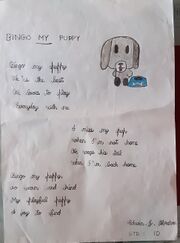 BINGO MY PUPPY
Bingo my puppy
He is the best
He loves to play
Everyday with me
I miss my pup
when I'm not home
He wags his tail
when I'm back home
Bingo my puppy
so warm and kind
My playful puppy
A joy to find
STD: 1D